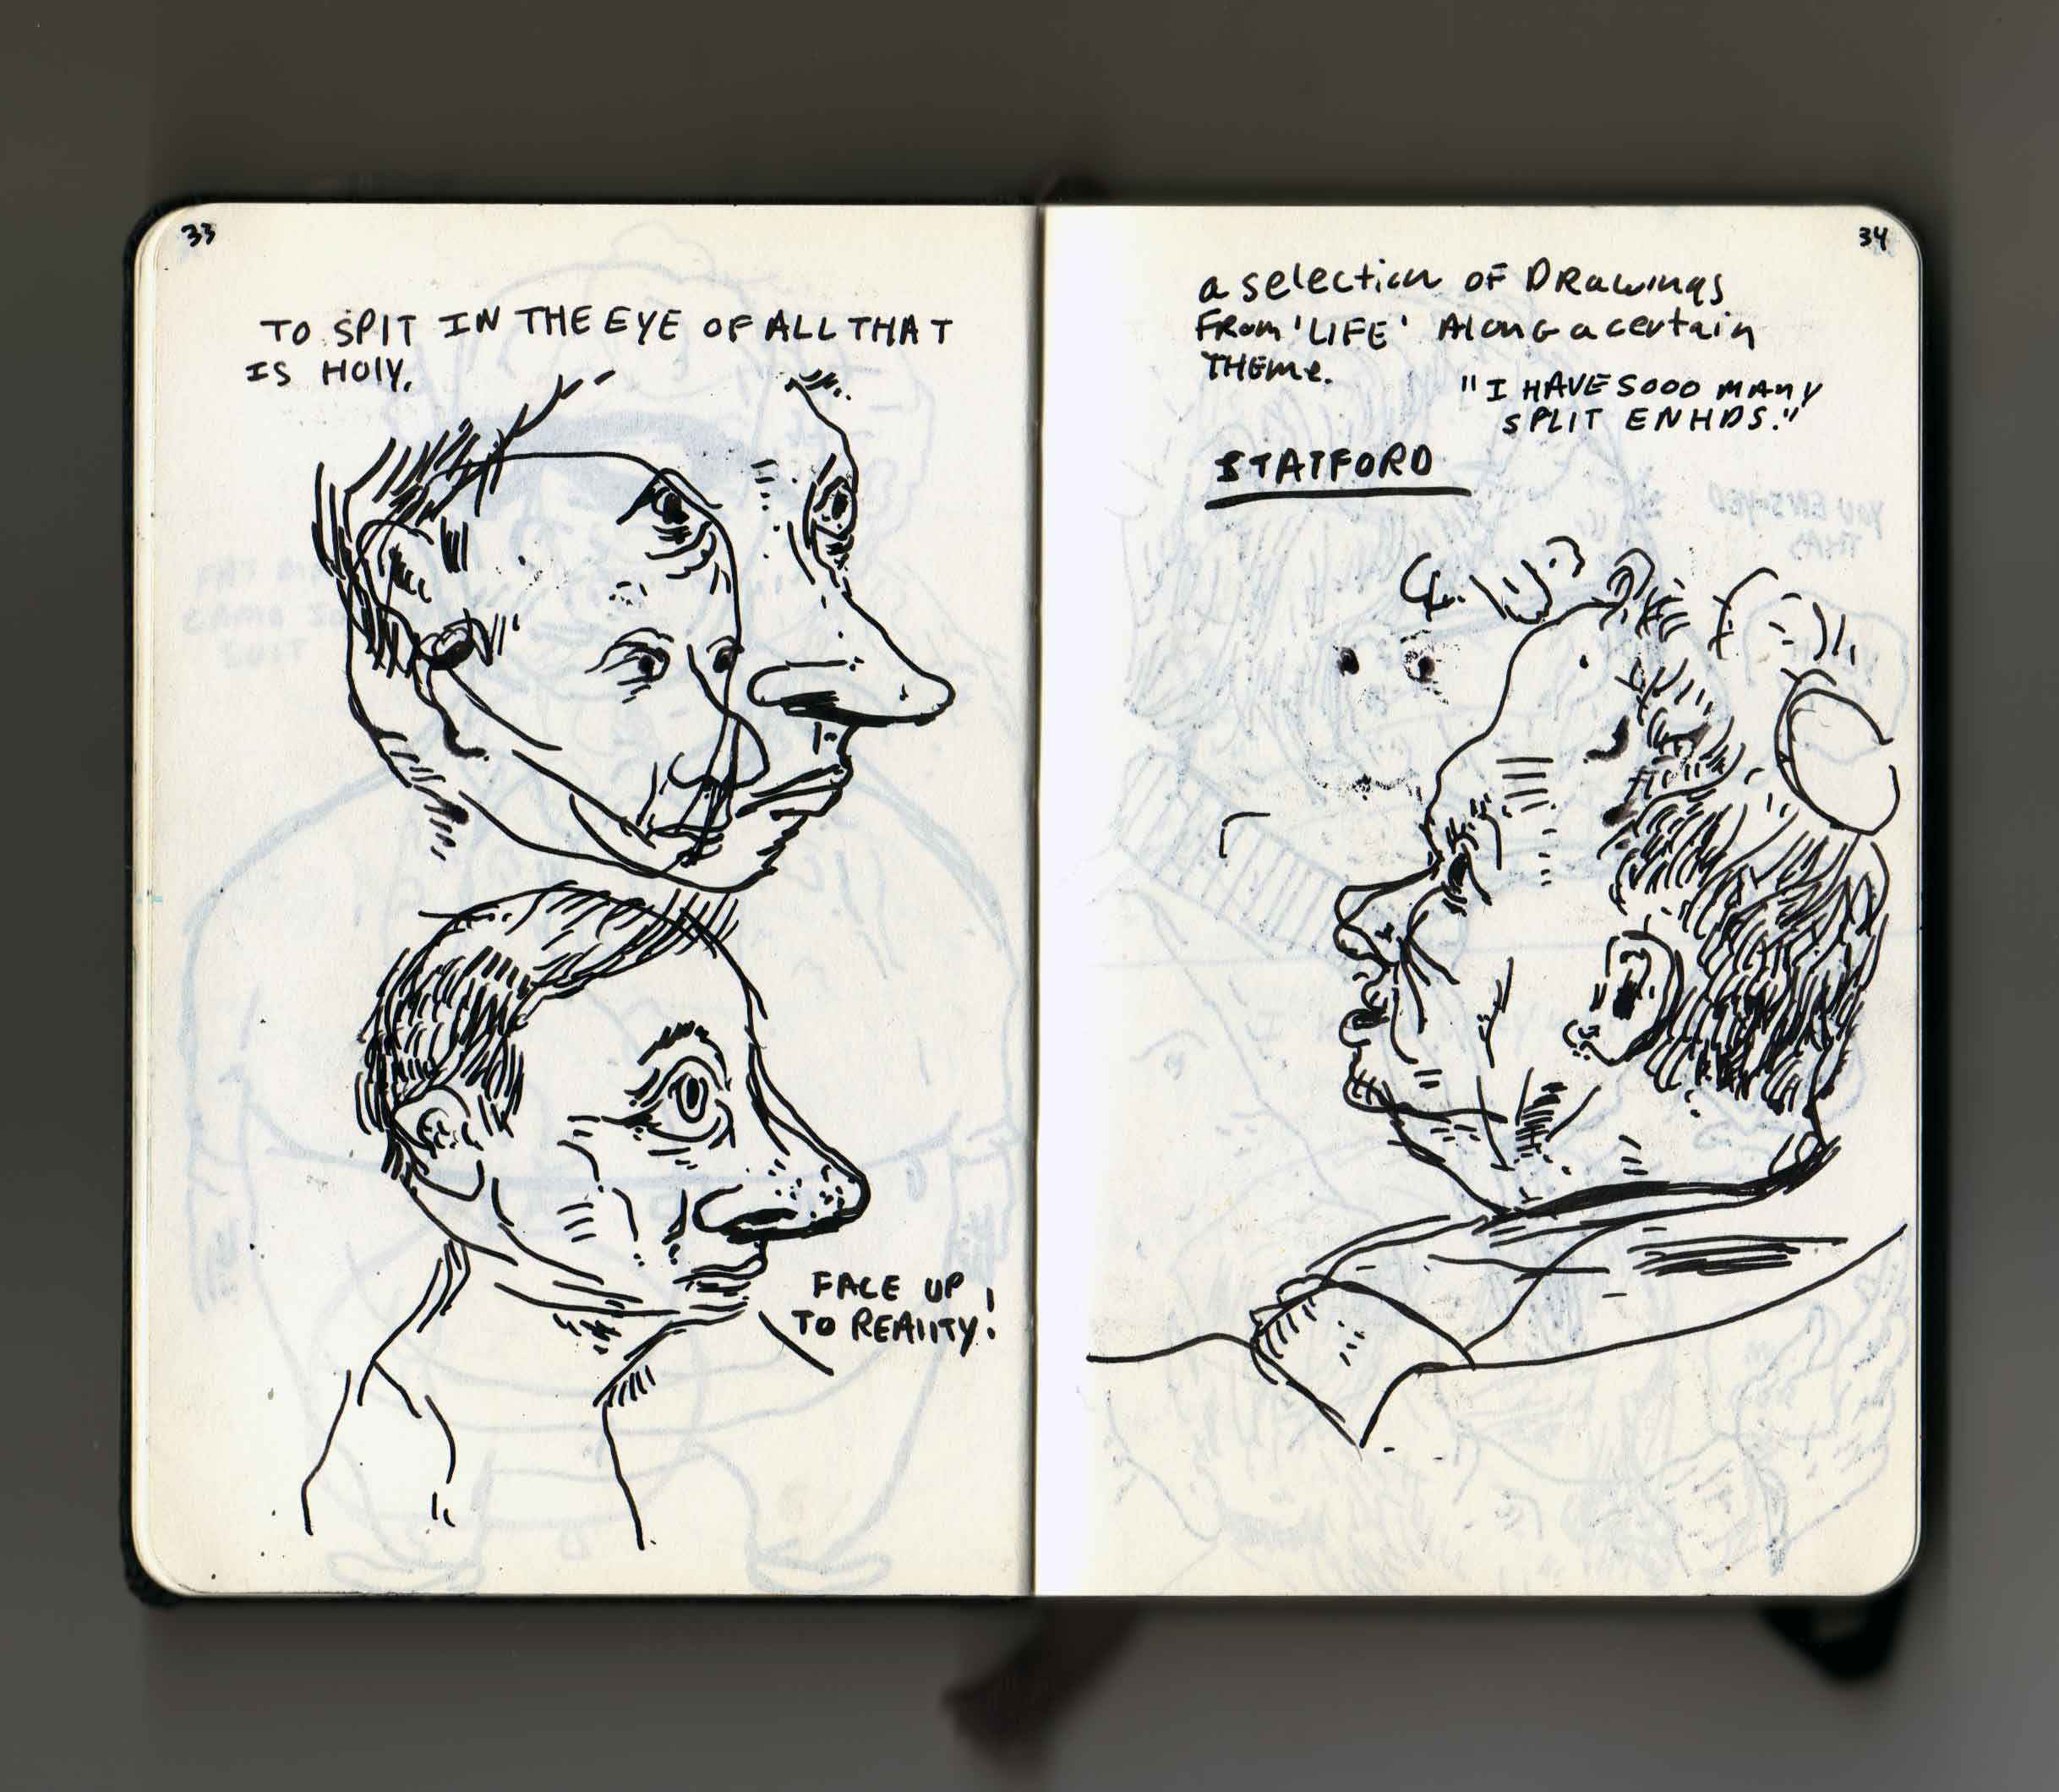 33
TO SPIT IN THE EYE OF ALL THAT
IS HOLY.
FACE UP
TO REALITY!
34
a selection OF DRawings
FROM 'LIFE' Along a certain
THEME.
"I HAVE SOOO MANY
SPLIT ENHDS."
STATFORD
YOU ENJOYED
THAT